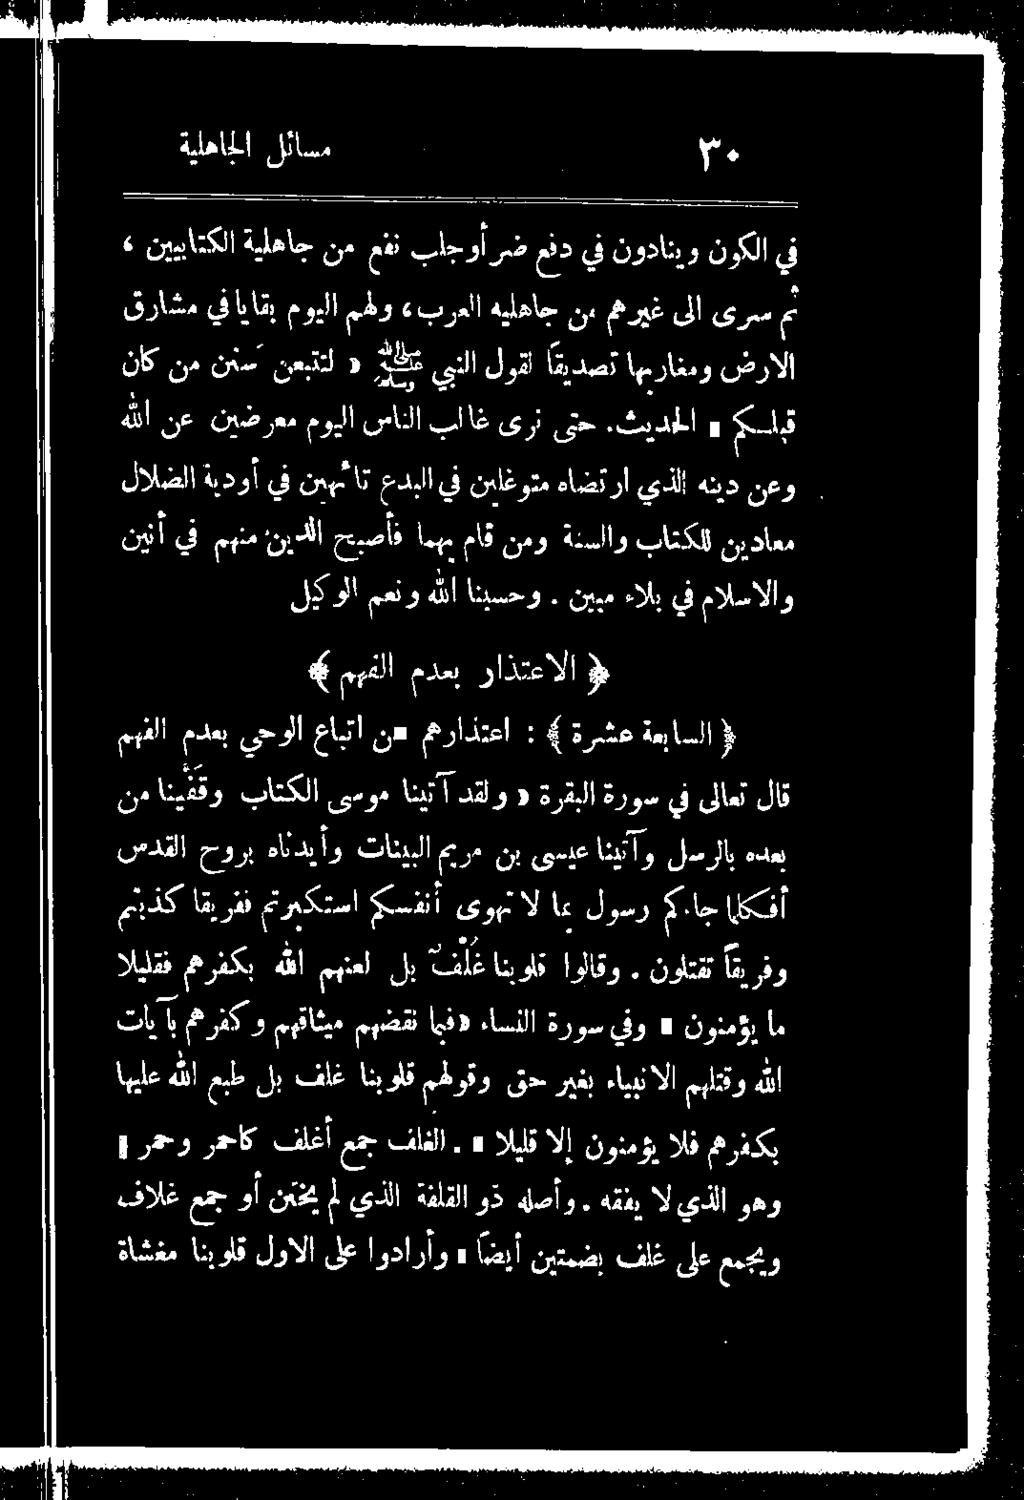 ٣٠ مسائل الجاهلية
في الكون وينادون في دفع ضر أوجلب نفع من جاهلية الكتابيين ،
ثم سرى الى غيرهم من جاهليه العرب، ولهم اليوم بقايافي مشارق
الارض ومغاربها تصديقاً لقول النبي ﷺ « لتتبعن سَنن من كان
قبلـكم » الحديث. حتى نرى غالب الناس اليوم معرضين عن الله
وعن دينه الذي ارتضاه متوغلين في البدع تائهين في أودية الضلال
معادين للكتاب والسنة ومن قام بهما فأصبح الدين منهم في أنين
والاسلام في بلاء مبين . وحسبنا الله ونعم الوكيل
﴿ الاعتذار بعدم الفهم ﴾
﴿ السابعة عشرة ﴾ : اعتذارهم من اتباع الوحي بعدم الفهم
قال تعالى في سورة البقرة « ولقد آتينا موسى الكتاب وقَفَّينا من
بعده بالرسل وآتينا عيسى بن مريم البينات وأيدناه بروح القدس
أفكلما جاءكم رسول بما لا تهوى أنفسكم استكبرتم ففريقا كذبتم
وفريقاً تقتلون . وقالوا قلوبنا غُلْفٌ بل لعنهم الله بكفرهم فقليلا
ما يؤمنون » وفي سورة النساء «فبما نقضهم ميثاقهم وكفرهم بآيات
الله وقتلهم الانبياء بغير حق وقولهم قلوبنا غلف بل طبع الله عليها
بكفرهم فلا يؤمنون إلا قليلا » . الغلف جمع أغلف كاحمر وحمر
وهو الذي لا يفقه . وأصله ذو القلفة الذي لم يختن أو جمع غلاف
ويجمع على غلف بضمتين أيضاً » وأرادوا على الاول قلوبنا مغشاة